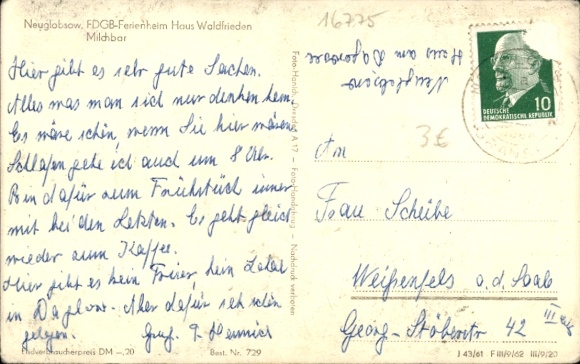 Neuglobsow, FDGB-Ferienheim Haus Waldfrieden
Milchbar
Hier gibt es sehr gute Sachen.
Alles was man sich nur denken kann.
Es wäre schön, wenn Sie hier wären
Schlafen gehe ich auch um 8 Uhr.
Bin dafür zum Frühstück immer
mit bei den Letzten. Es geht gleich
wieder zum Kaffee.
Hier gibt es kein kein Lokal
in Dagow. Aber dafür sehr schön
gelegen. Gruß
Endverbraucherpreis DM -,20 Best. Nr. 729
Nachdruck verboten
16775
Neuglobsow
Haus am Dagowsee
DEUTSCHE
DEMOKRATISCHE REPUBLIK
10
3€
An
Frau Scheibe
Weißenfels a.d. Saale
Georg-Stöber-Str 42 III
J 43/61 F III/9/62 III/9/20